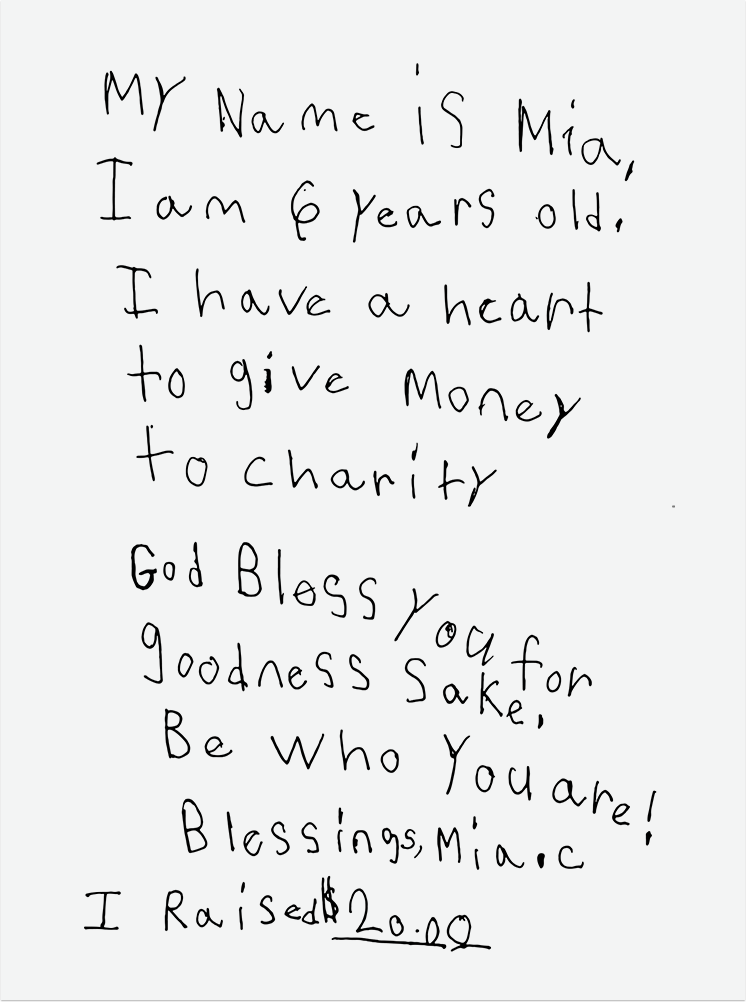 MY Name is Mia,
I am 6 years old.
I have a heart
to give Money
to charity
God Bless you for
goodness Sake.
Be who You are!
Blessings, Mia.c
I Raised $20.00